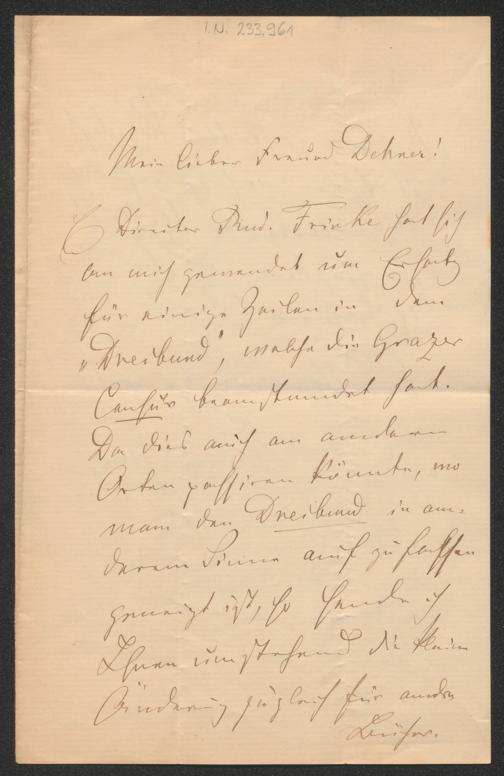 I.N. 233.961
Mein lieber Freund Dehner!
Director Rud. Frinke hat sich
an mich gewendet um Ersatz
für einige Zeilen in dem
„Dreibund", welche die Grazer
Censur beanstandet hat.
Da dies auch an andern
Orten passiren könnte, wo
man den Dreibund in an-
derem Sinne aufzufassen
geneigt ist, so sende ich
Ihnen umstehend die kleine
Änderung zugleich für andre